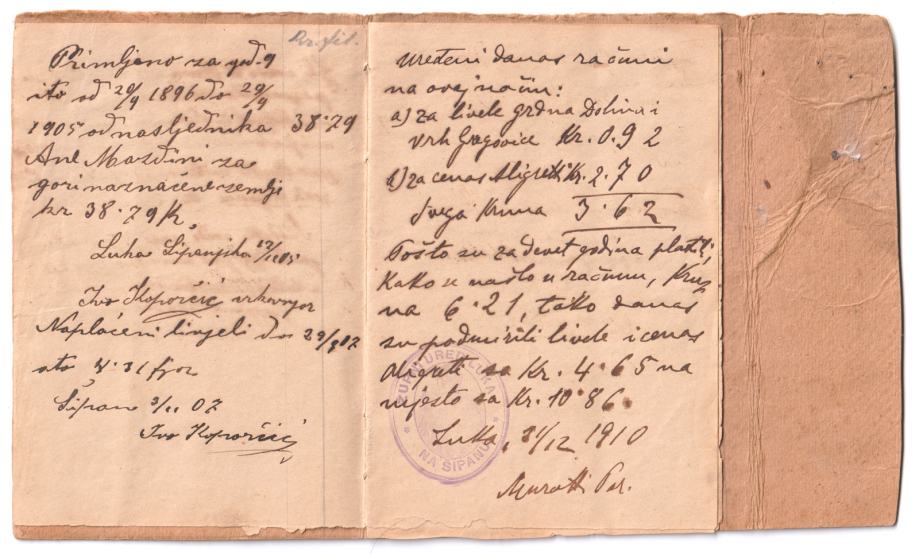 Kr. fil.
Primljeno za god. 9
i to od 29/9 1896 do 29/9
1905 od nasljednika 38·79
Ane Mazdini za
gori naznačene zemlje
kr 38·79
Luka Šipanjska 12/11 05
Ivo Koporčić
Naplaćeni livjeli do 29/9 07
sto
Šipan 3/11 07
Ivo Koporčić
Uređeni danas računi
na ovaj način:
a) za livele grdna Dolina i
vrh Gregovice Kr. 0.92
b) za cenas Aligretti Kr. 2.70
Svega Kruna 3·62
Pošto su za devet godina platili,
kako u našlo u računu, Kru
na 6·21, tako danas
su podmirili livele i cenas
Aligretti sa Kr. 4·65 na
mjesto sa Kr. 10·86.
Luka, 31/12 1910
Muratti Per.
ŽUPNI URED LUKA
NA ŠIPANU